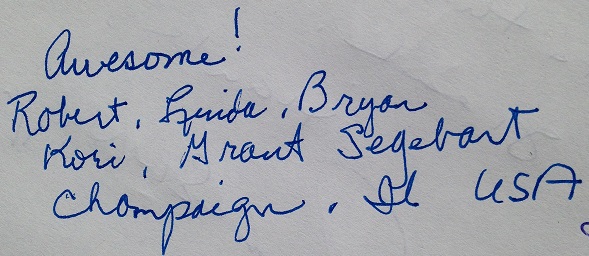 Awesome!
Robert, Linda, Bryan
Kori, Grant Segebart
Champaign, Il USA